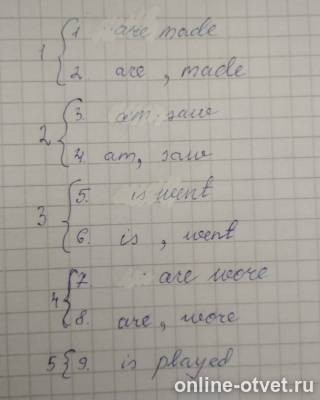 1 { 1. are made
2. are, made
2 { 3. am, saw
4. am, saw
3 { 5. is went
6. is, went
4 { 7. are wore
8. are, wore
5 { 9. is played
online-otvet.ru